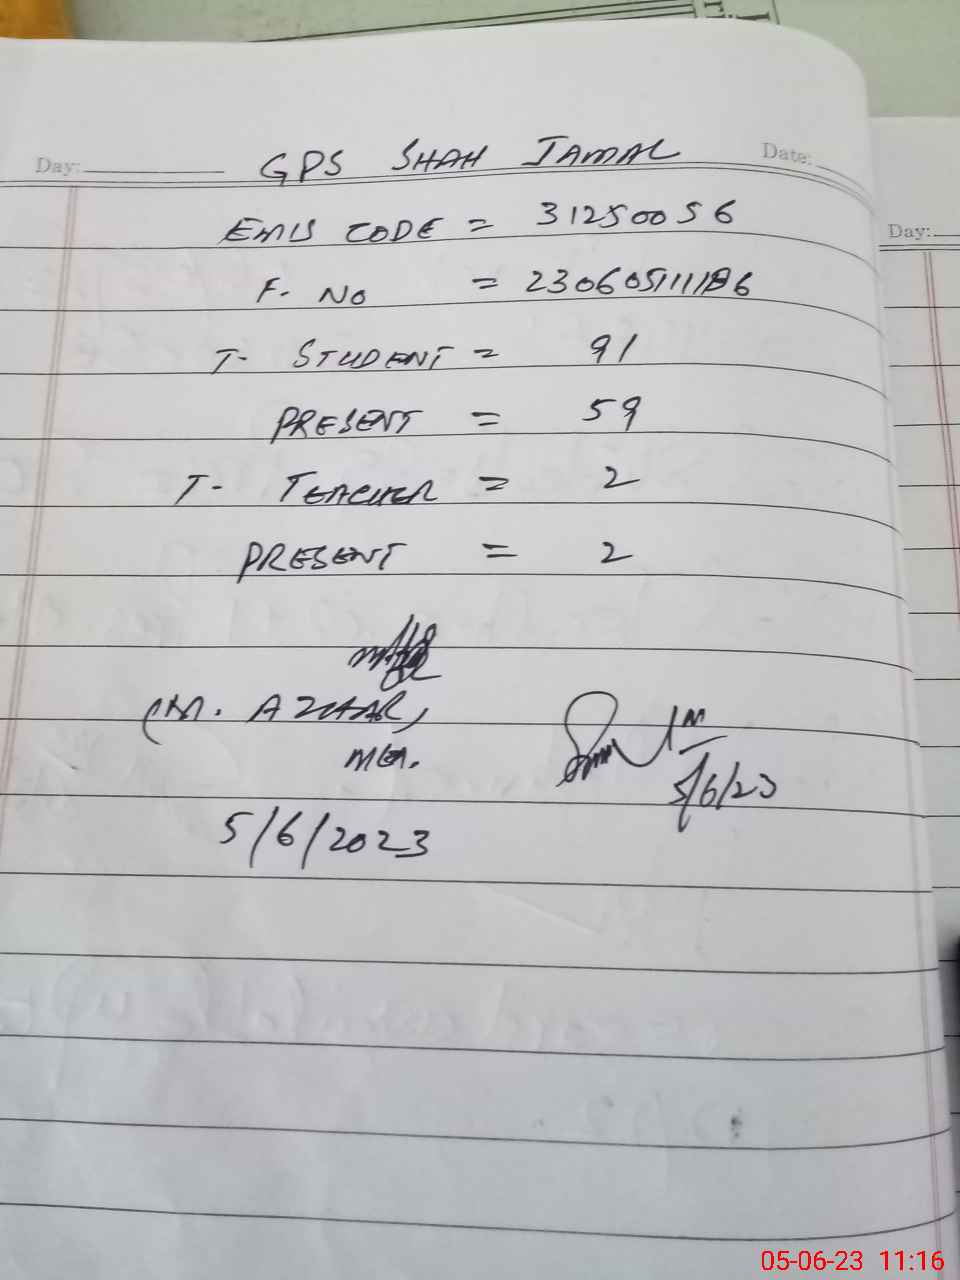 Day: GPS SHAH JAMAL Date:
EMIS CODE = 31250056
F. No =
T- STUDENT = 91
PRESENT = 59
T- TEACHER = 2
PRESENT = 2
(M. AZHAR)
MEA.
5/6/23
5/6/2023
Day:
05-06-23 11:16